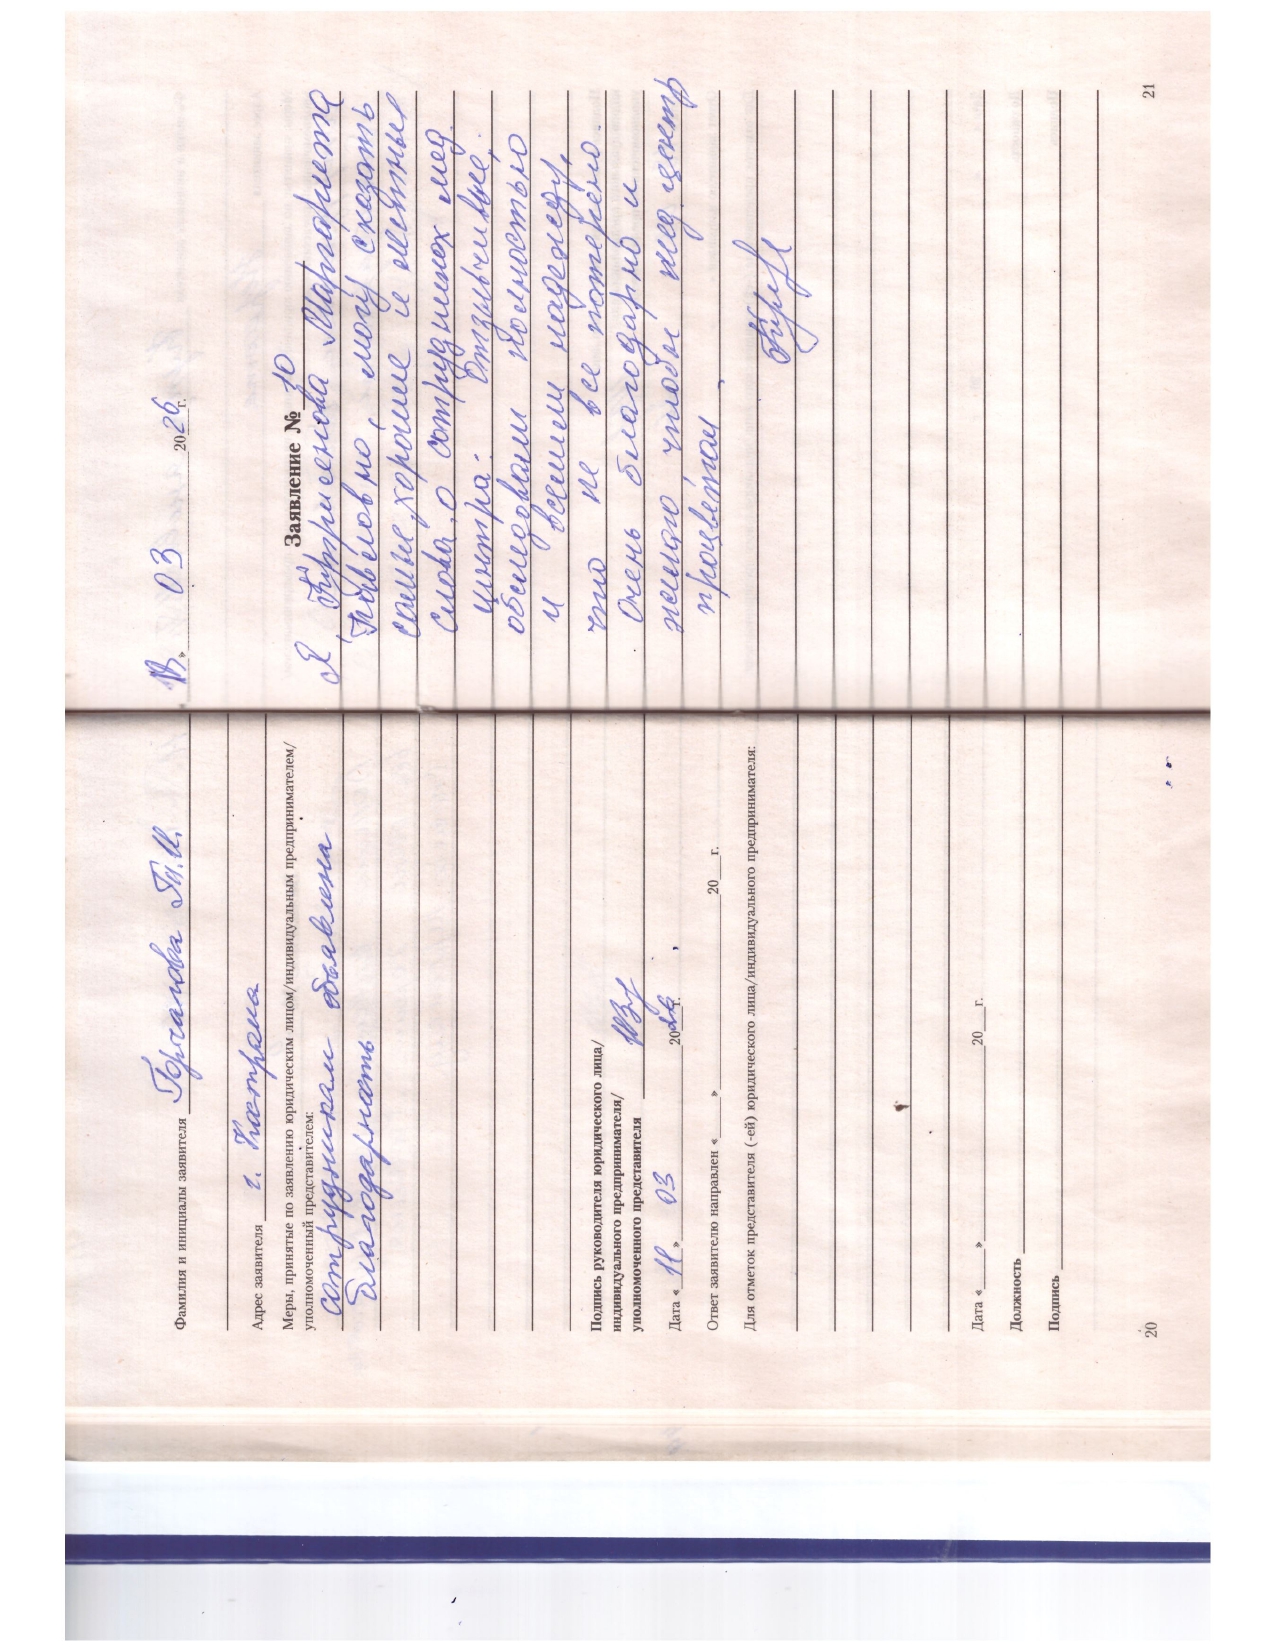 Фамилия и инициалы заявителя Горчакова Т.И.
Адрес заявителя г. Кострома
Меры, принятые по заявлению юридическим лицом/индивидуальным предпринимателем/
уполномоченный представителем:
сотрудникам объявлена
благодарность
Подпись руководителя юридического лица/
индивидуального предпринимателя/
уполномоченного представителя
Дата « 11 » 03 2026 г.
Ответ заявителю направлен « » 20 г.
Для отметок представителя (-ей) юридического лица/индивидуального предпринимателя:
Дата « » 20 г.
Должность
Подпись
20
» 03 2026 г.
Заявление № 10
Я, Маргарита
Павловна, могу сказать
самые хорошие и лестные
слова о сотрудниках мед.
центра. Отзывчивые,
обследовали полностью
и вселили надежду,
что не все потеряно.
Очень благодарна и
желаю чтобы мед. центр
процветал
21